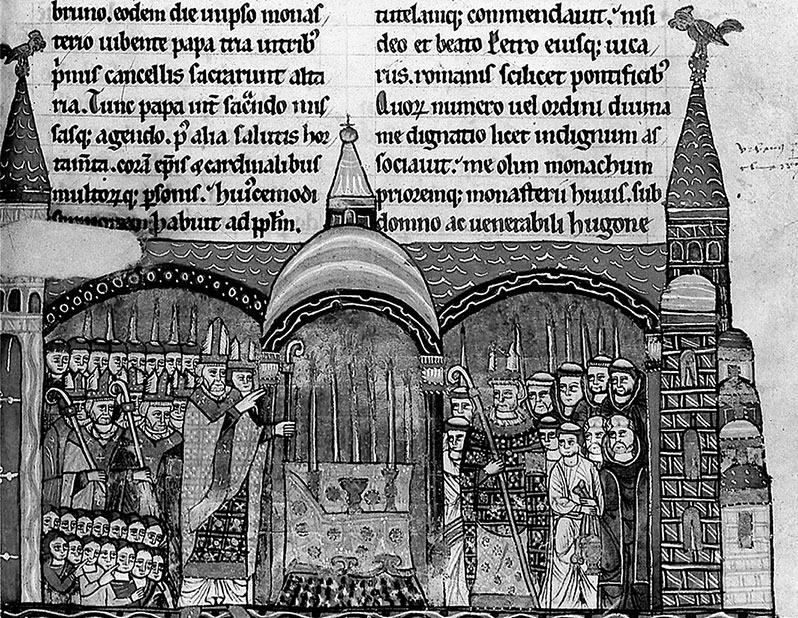 bruno. eodem die in ipso monas
terio iubente papa tria in tribꝰ
p̍mis cancellis sacrarunt alta
ria. Tunc papa int̄ sac̄ndo mis
sasq; agendo. p̄ alia salutis hor
tam̄ta. corā ep̄is ⁊ cardinalibus
multorꝝq; ꝑsonis. huiuscemodi
habuit ad ppl̄m.
tutelamq; commendauit. nisi
deo et beato Petro eiusq; uica
riis. romanis scilicet pontificibꝰ
Quoꝝ numero uel ordini diuina
me dignatio licet indignum as
sociauit. me olim monachum
prioremq; monasterii huius. sub
domno ac uenerabili hugone